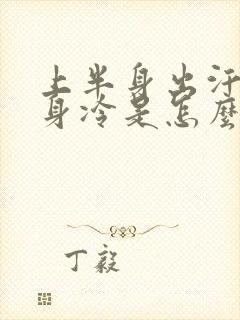 上半身出汗
身冷是怎麼
丁毅